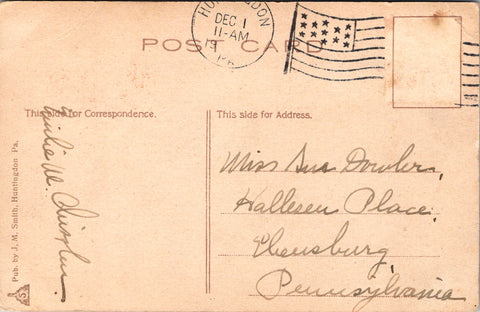 HUNTINGDON
DEC 1
11-AM
PA.
POST CARD
This side for Correspondence.
This side for Address.
Miss Sue Dowler,
Hallesen Place,
Ebensburg,
Pennsylvania
Pub. by J. M. Smith, Huntingdon Pa.